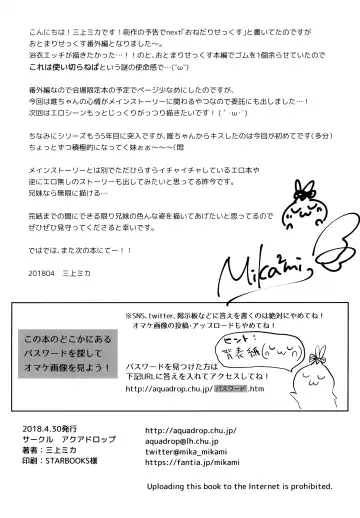 こんにちは！三上ミカです！前作の予告でnext「おねだりせっくす」と書いてたのですが
おとまりせっくす番外編となりました〜。
浴衣エッチが描きたかった…！！のと、おとまりせっくす本編でゴムを1個余らせていたので
これは使い切らねばという謎の使命感で…(^ω^)
番外編なので会場限定本の予定でページ少なめにしたのですが、
今回は雛ちゃんの心情がメインストーリーに関わるやつなので委託にも出しました…！
次回はエロシーンもっとじっくりがっつり描きたいです！(｀･ω･´)
ちなみにシリーズもう5年目に突入ですが、雛ちゃんからキスしたのは今回が初めてです(多分)
ちょっとずつ積極的になってく妹ぉぉ〜〜〜(悶
メインストーリーとは別でただひらすらイチャイチャしているエロ本や
逆にエロ無しのストーリーも出してみたいと思ってる昨今です。
兄妹なら無限に描ける…
完結までの間にできる限り兄妹の色んな姿を描いてあげたいと思ってるので
ぜひぜひ見守ってくださると幸いです。
ではでは、また次の本にてー！！
201804　三上ミカ
Mikami
※SNS、twitter、掲示板などに答えを書くのは絶対にやめてね！
オマケ画像の投稿・アップロードもやめてね！
この本のどこかにある
パスワードを探して
オマケ画像を見よう！
ヒント：
背表紙
パスワードを見つけた方は
下記URLに答えを入れてアクセスしてね！
http://aquadrop.chu.jp/パスワード.htm
2018.4.30発行
サークル　アクアドロップ
著者：三上ミカ
印刷：STARBOOKS様
http://aquadrop.chu.jp/
aquadrop@lh.chu.jp
twitter@mika_mikami
https://fantia.jp/mikami
Uploading this book to the Internet is prohibited.